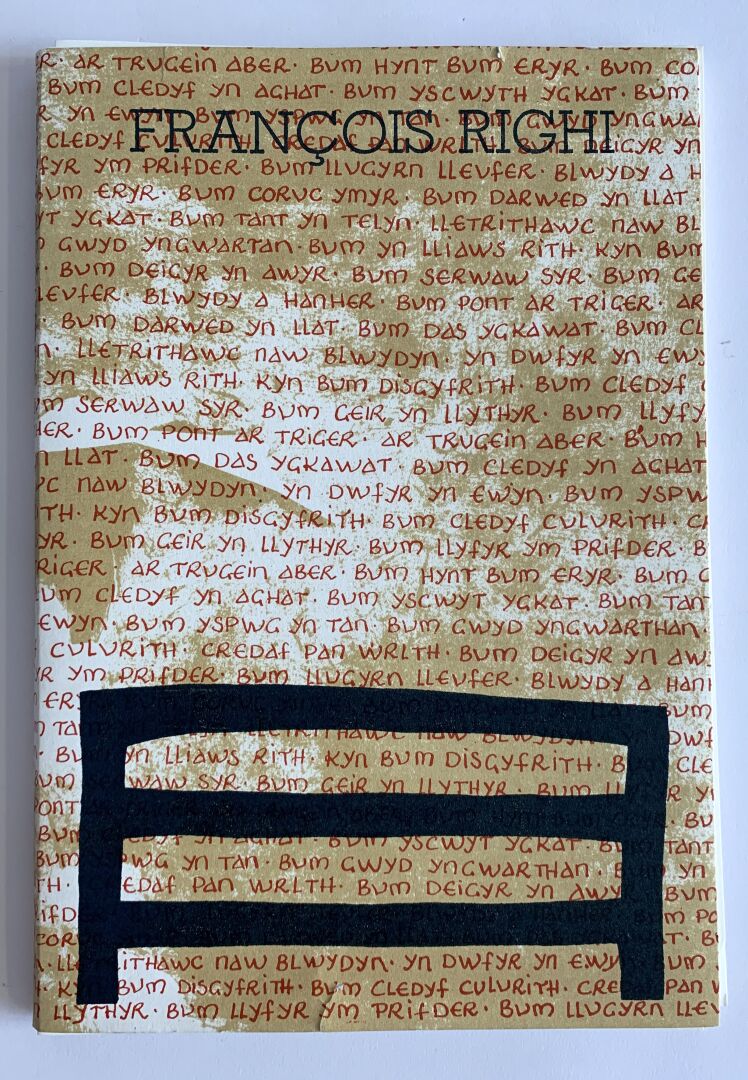 R· AR TRUGEIN ABER· BUM HYNT BUM ERYR· BUM CO
BUM CLEDYF YN AGHAT· BUM YSCWYTH YGKAT· BUM
R YN EWYN· BUM YSPWG YN TAN· BUM GWYD YNGWA
FRANÇOIS RIGHI
CLEDYF CULURITH· CREDAF PAN WRLTH· BUM DEIGYR YN
FYR YM PRIFDER· BUM LLUGYRN LLEUFER· BLWYDY A H
UM ERYR· BUM CORUC YMYR· BUM DARWED YN LLAT·
YT YGKAT· BUM TANT YN TELYN· LLETRITHAWC NAW BL
GWYD YNGWARTAN· BUM YN LLIAWS RITH· KYN BUM
· BUM DEIGYR YN AWYR· BUM SERWAW SYR· BUM GE
LEUFER· BLWYDY A HANHER· BUM PONT AR TRIGER· AR
BUM DARWED YN LLAT· BUM DAS YGKAWAT· BUM CL
N· LLETRITHAWC NAW BLWYDYN· YN DWFYR YN EWY
YN LLIAWS RITH· KYN BUM DISGYFRITH· BUM CLEDYF
M SERWAW SYR· BUM GEIR YN LLYTHYR· BUM LLYFY
HER· BUM PONT AR TRIGER· AR TRUGEIN ABER· BUM H
N LLAT· BUM DAS YGKAWAT· BUM CLEDYF YN AGHAT
C NAW BLWYDYN· YN DWFYR YN EWYN· BUM YSPW
ITH· KYN BUM DISGYFRITH· BUM CLEDYF CULURITH· C
YR· BUM GEIR YN LLYTHYR· BUM LLYFYR YM PRIFDER· B
RIGER AR TRUGEIN ABER· BUM HYNT BUM ERYR· BUM C
UM CLEDYF YN AGHAT· BUM YSCWYT YGKAT· BUM TANT
EWYN· BUM YSPWG YN TAN· BUM GWYD YNGWARTHAN·
CULURITH· CREDAF PAN WRLTH· BUM DEIGYR YN AW
R YM PRIFDER· BUM LLUGYRN LLEUFER· BLWYDY A HAN
ERY BUM
M TA DWF
BU YN LLIAWS RITH· KYN BUM DISGYFRITH· B CLE
UM WAW SYR· BUM GEIR YN LLYTHYR· BUM LL R Y
PONT BU
BUM YSCWYT YGKAT· TANT
BUM PWG YN TAN· BUM GWYD YNGWARTHAN· YN
TH· EDAF PAN WRLTH· BUM DEIGYR YN AWY BUM
IFDE M PO
CORU T· B
· LL ITHAWC NAW BLWYDYN· YN DWFYR YN EWY UM
· KY BUM DISGYFRITH· BUM CLEDYF CULURITH· CRE PAN W
LLYTHYR· BUM LLYFYR YM PRIFDER· BUM LLUGYRN LLEU